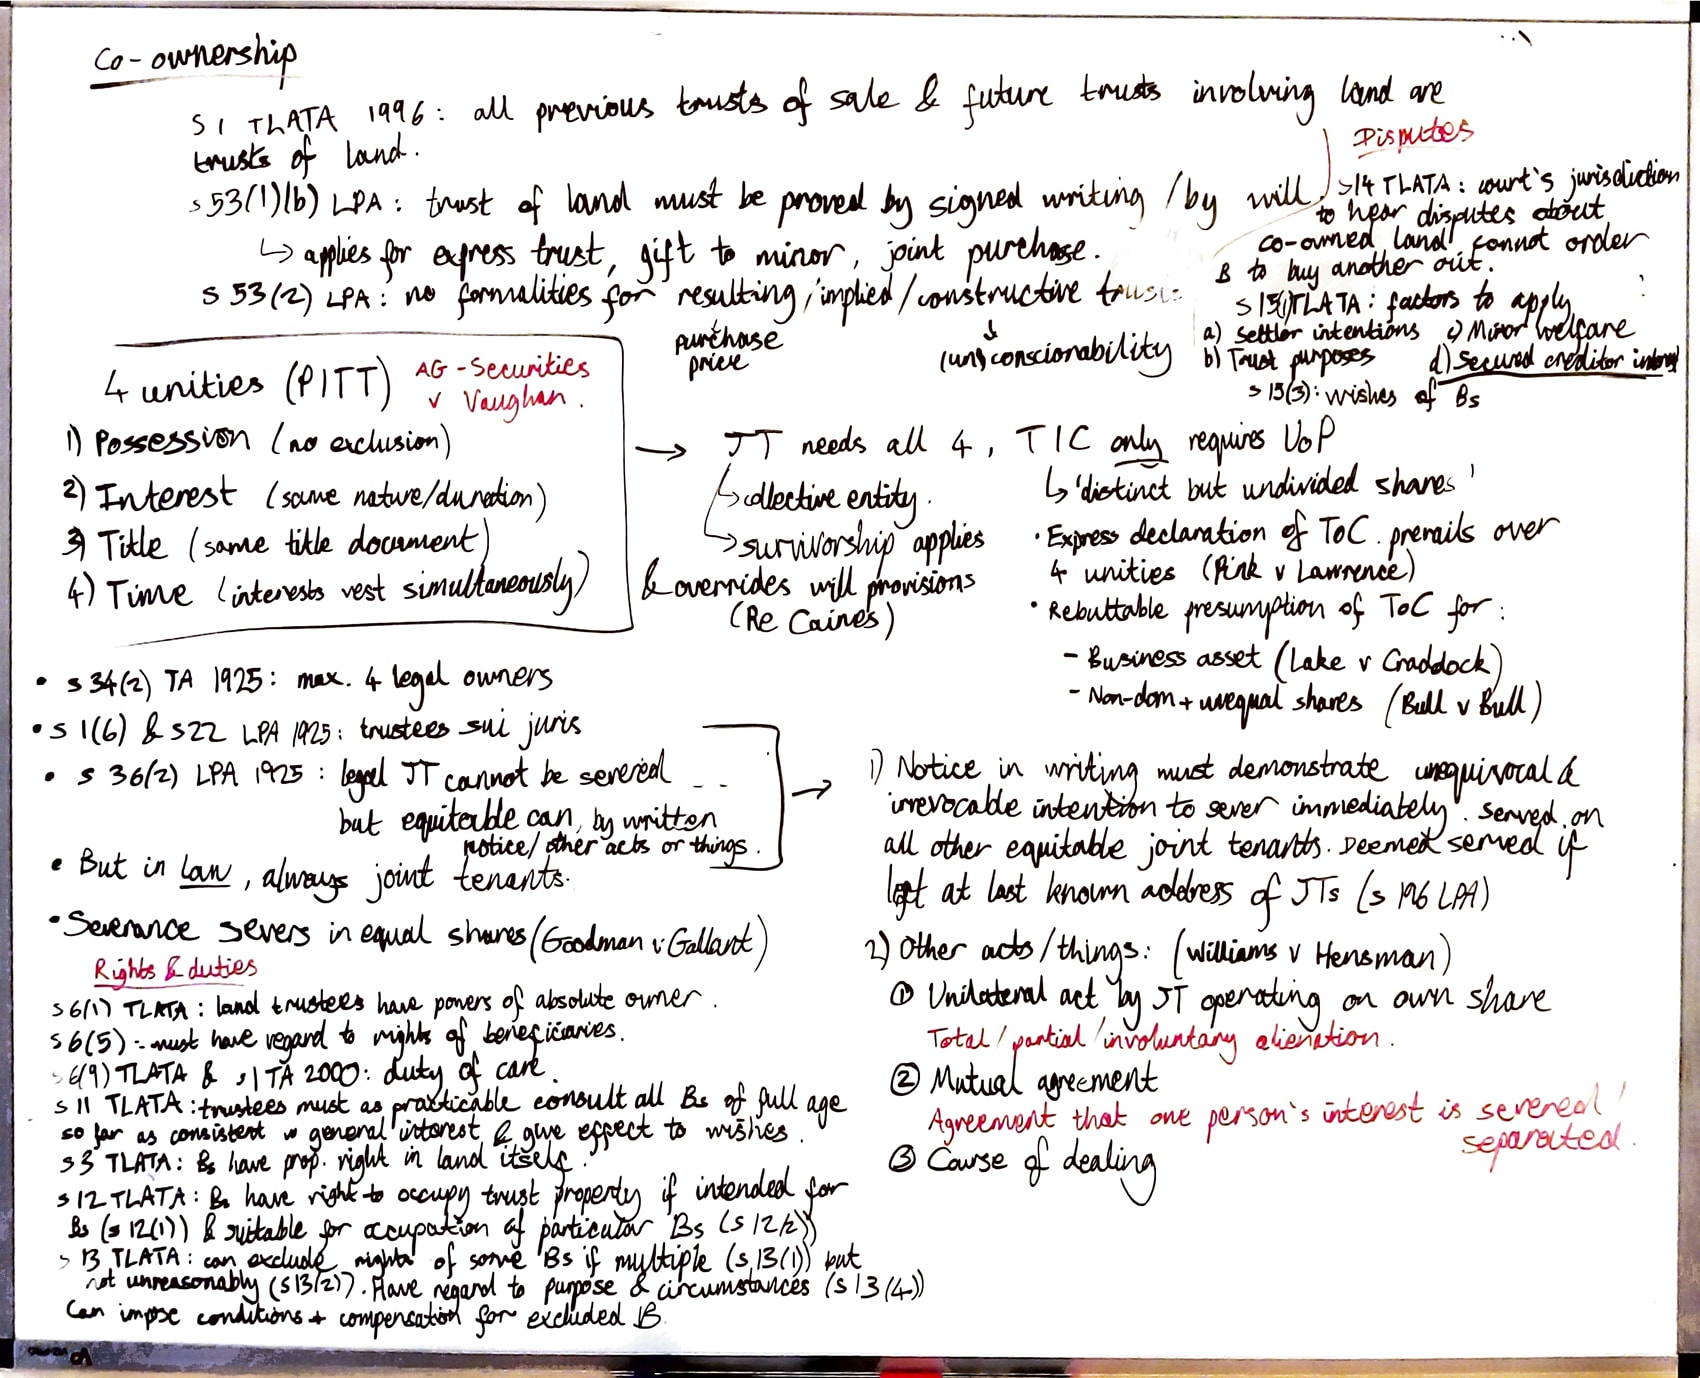 Co-ownership
S 1 TLATA 1996: all previous trusts of sale & future trusts involving land are
trusts of land.
s 53(1)(b) LPA: trust of land must be proved by signed writing / by will.
↳ applies for express trust, gift to minor, joint purchase.
S 53(2) LPA: no formalities for resulting / implied / constructive trusts
purchase
price
(un)conscionability
Disputes
s14 TLATA: court's jurisdiction
to hear disputes about
co-owned land. cannot order
B to buy another out.
s 15(1) TLATA: factors to apply
a) Settlor intentions c) Minor welfare
b) Trust purposes d) Secured creditor interest
s 15(3): wishes of Bs
4 unities (PITT) AG-Securities
v Vaughan.
1) Possession (no exclusion)
2) Interest (same nature/duration)
3) Title (same title document)
4) Time (interests vest simultaneously)
→ JT needs all 4, TIC only requires UoP
↳ collective entity.
↳ survivorship applies
& overrides will provisions
(Re Caines)
↳ 'distinct but undivided shares'
· Express declaration of ToC prevails over
4 unities (Pink v Lawrence)
· Rebuttable presumption of ToC for:
- Business asset (Lake v Craddock)
- Non-dom + unequal shares (Bull v Bull)
• s 34(2) TA 1925: max. 4 legal owners
• s 1(6) & s22 LPA 1925: trustees sui juris
• s 36(2) LPA 1925: legal JT cannot be severed ...
but equitable can, by written
notice/ other acts or things.
• But in law, always joint tenants.
• Severance severs in equal shares (Goodman v Gallant)
→ 1) Notice in writing must demonstrate unequivocal &
irrevocable intention to sever immediately. Served on
all other equitable joint tenants. Deemed served if
left at last known address of JTs (s 196 LPA)
2) Other acts/things: (Williams v Hensman)
① Unilateral act by JT operating on own share
Total / partial / involuntary alienation.
② Mutual agreement
Agreement that one person's interest is severed/
separated.
③ Course of dealing
Rights & duties
s 6(1) TLATA: land trustees have powers of absolute owner.
s 6(5) - must have regard to rights of beneficiaries.
s 6(9) TLATA & s1 TA 2000: duty of care.
s 11 TLATA: trustees must as practicable consult all Bs of full age
so far as consistent w general interest & give effect to wishes.
s 3 TLATA: Bs have prop. right in land itself.
s 12 TLATA: Bs have right to occupy trust property if intended for
Bs (s 12(1)) & suitable for occupation of particular Bs (s 12(2))
s 13 TLATA: can exclude rights of some Bs if multiple (s 13(1)) but
not unreasonably (s13(2)). Have regard to purpose & circumstances (s 13(4))
Can impose conditions + compensation for excluded B